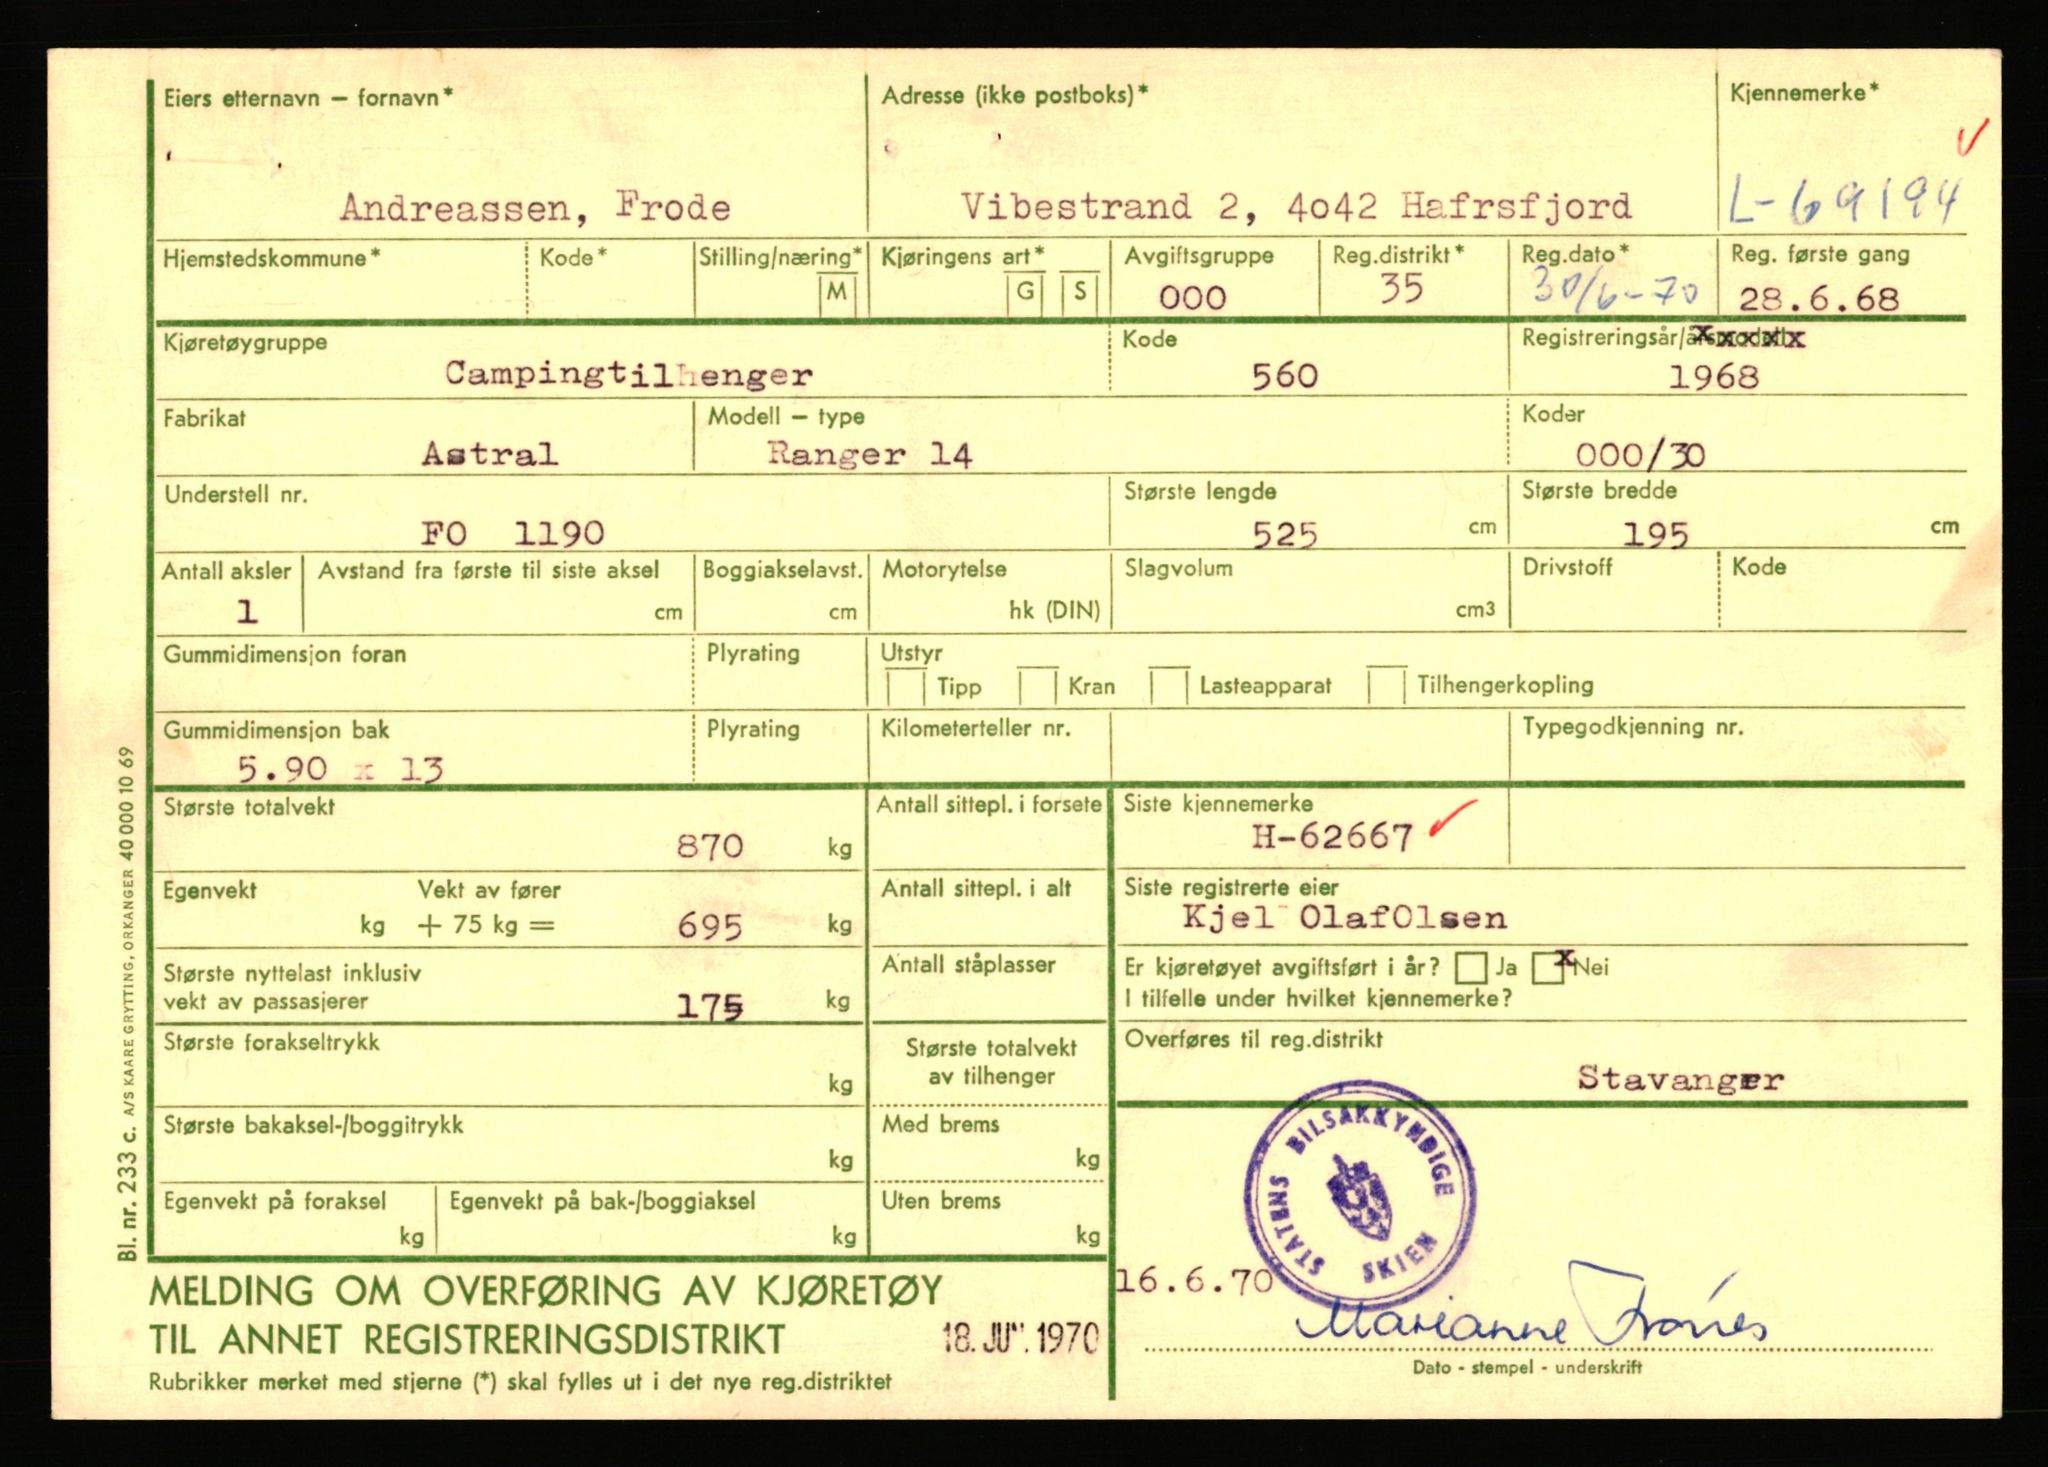 Eiers etternavn – fornavn*
Adresse (ikke postboks)*
Kjennemerke*
Andreassen, Frode
Vibestrand 2, 4042 Hafrsfjord
L-69194
Hjemstedskommune*
Kode*
Stilling/næring*
M
Kjøringens art*
G S
Avgiftsgruppe
000
Reg.distrikt*
35
Reg.dato*
30/6-70
Reg. første gang
28.6.68
Kjøretøygruppe
Campingtilhenger
Kode
560
Registreringsår/årsmodell
1968
Fabrikat
Astral
Modell – type
Ranger 14
Koder
000/30
Understell nr.
FO 1190
Største lengde
525 cm
Største bredde
195 cm
Antall aksler
1
Avstand fra første til siste aksel
cm
Boggiakselavst.
cm
Motorytelse
hk (DIN)
Slagvolum
cm3
Drivstoff
Kode
Gummidimensjon foran
Plyrating
Utstyr
Tipp Kran Lasteapparat Tilhengerkopling
Gummidimensjon bak
5.90 x 13
Plyrating
Kilometerteller nr.
Typegodkjenning nr.
Største totalvekt
870 kg
Antall sittepl. i forsete
Siste kjennemerke
H-62667
Egenvekt Vekt av fører
kg + 75 kg = 695 kg
Antall sittepl. i alt
Siste registrerte eier
Kjel OlafOlsen
Største nyttelast inklusiv
vekt av passasjerer 175 kg
Antall ståplasser
Er kjøretøyet avgiftsført i år? Ja x Nei
I tilfelle under hvilket kjennemerke?
Største forakseltrykk
kg
Største totalvekt
av tilhenger
Overføres til reg.distrikt
Stavanger
Største bakaksel-/boggitrykk
kg
Med brems
kg
Egenvekt på foraksel
kg
Egenvekt på bak-/boggiaksel
kg
Uten brems
kg
STATENS BILSAKKYNDIGE
SKIEN
16.6.70
Marianne
MELDING OM OVERFØRING AV KJØRETØY
TIL ANNET REGISTRERINGSDISTRIKT
18. JU . 1970
Rubrikker merket med stjerne (*) skal fylles ut i det nye reg.distriktet
Dato - stempel - underskrift
Bl. nr. 233 c. A/S KAARE GRYTTING, ORKANGER 40 000 10 69